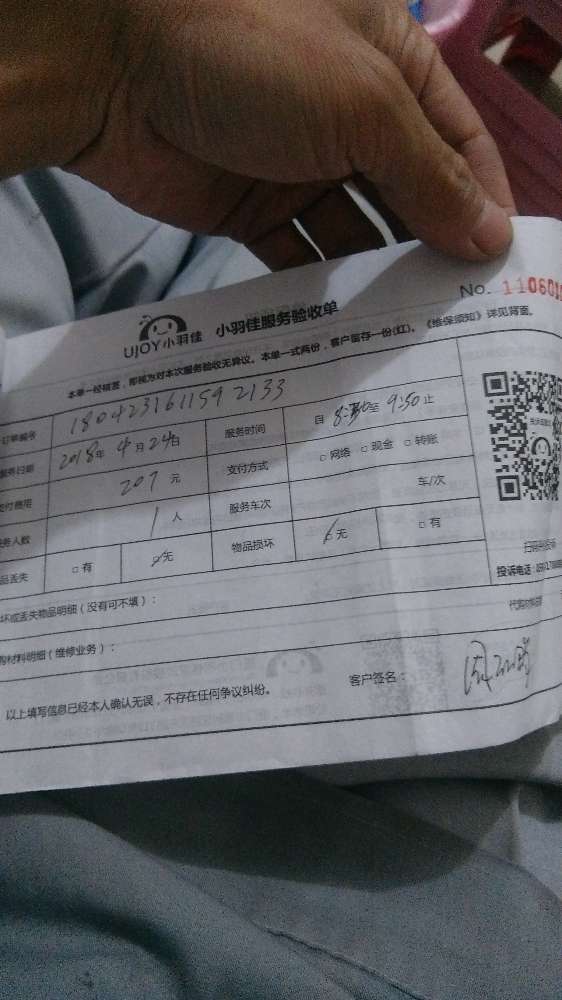 No. 110601
UJOY小羽佳 小羽佳服务验收单
本单一经核签，即视为对本次服务验收无异议。本单一式两份，客户留存一份(红)。《维保须知》详见背面。
订单编号 1804231611592133
服务日期 2018年4月24日 服务时间 自 8:30 至 9:50 止
支付费用 207元 支付方式 □网络 □现金 □转账
服务人数 1人 服务车次 车/次
品丢失 □有 ☑无 物品损坏 ☑无 □有
坏或丢失物品明细（没有可不填）：
扫码
投诉电话：
购材料明细（维修业务）：
以上填写信息已经本人确认无误，不存在任何争议纠纷。 客户签名：